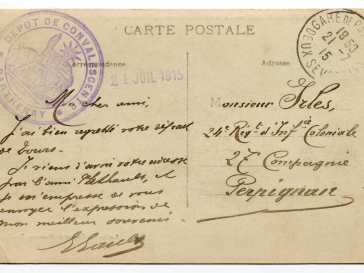 CARTE POSTALE
Correspondance
Adresse
DÉPOT DE CONVALESCENTS
21 JUIL 1915
GARE DE
18
21 -7
15
Mon cher ami,
J'ai bien regretté votre départ
de Tours.
Je viens d'avoir votre adresse
par l'ami Thébault, et
je m'empresse de vous
envoyer l'expression de
mon meilleur souvenir.
Monsieur Isles,
24e Rég.t d'Inf.ie Coloniale
27 Compagnie
Perpignan